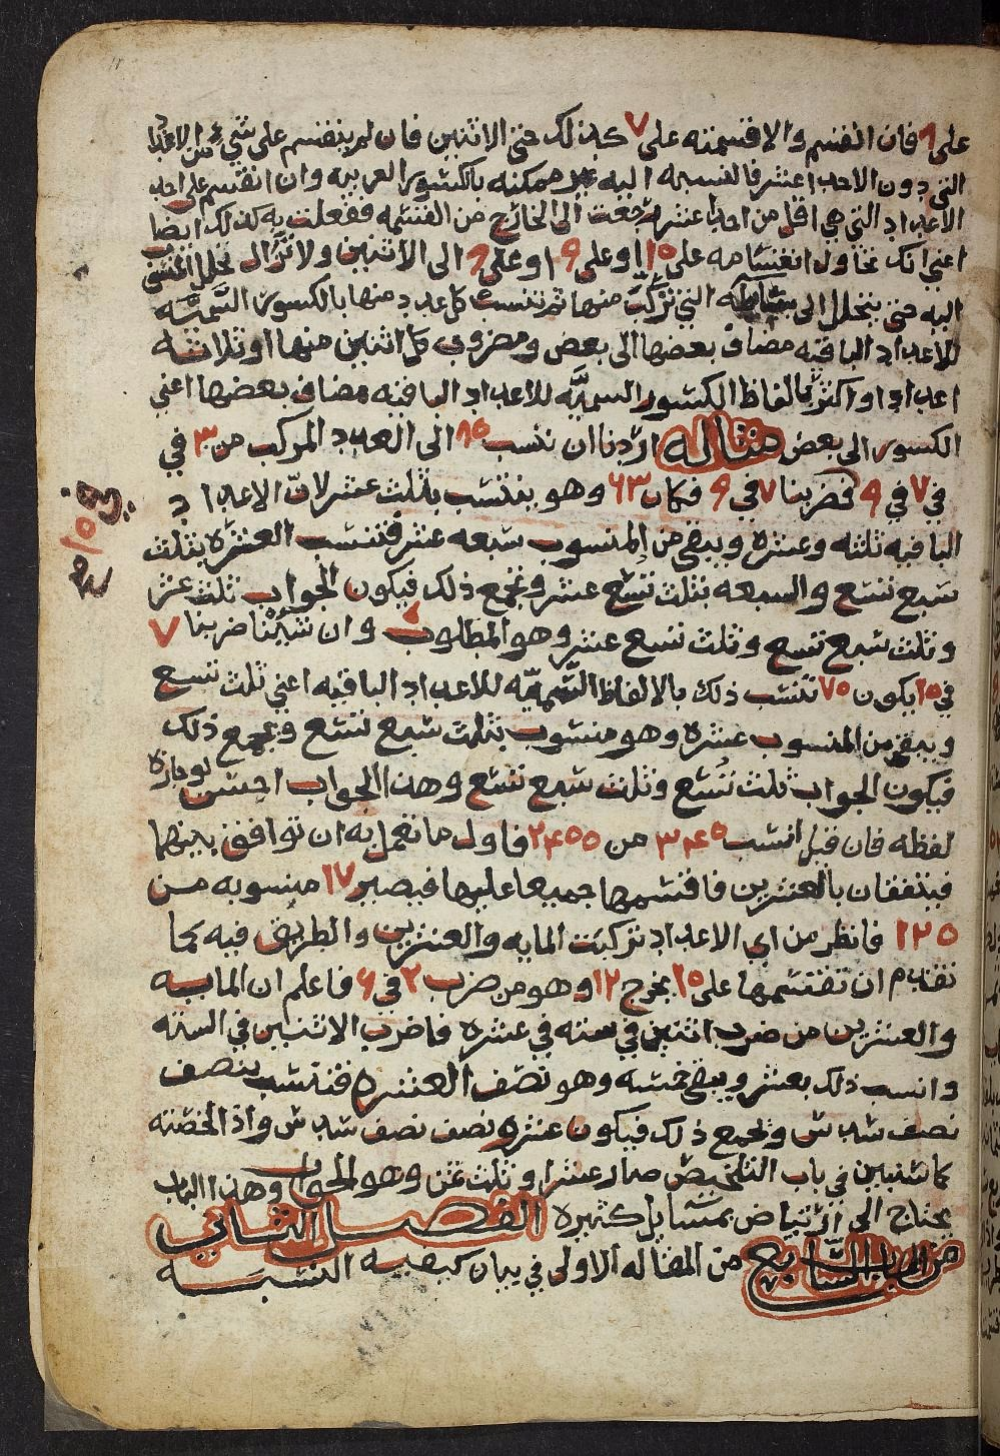 على ٩ فان انقسم والا قسمته على ٧ كذلك حتى الاثنين فان لم ينقسم على شيء من الاعداد
التي دون الاحد عشر فالنسبه اليه غير ممكنه بالكسور العربيه وان انقسم على احد
الاعداد التي هي اقل من احد عشر رجعت الى الخارج من القسمه ففعلت به كذلك ايضا
اعني انك تحاول انقسامه على ١٥ او على ٩ او على الى الاثنين ولا تزال تحلل المنسوب
اليه حتى ينحلل الى بسائطه التي تركبت منها ثم تنسب كل عدد منها بالكسور السميّه
للاعداد الباقيه مضاف بعضها الى بعض ومضروب كل اثنين منها او ثلاثه
اعداد او اكثر بالفاظ الكسور السميّه للاعداد الباقيه مضاف بعضها اعني
الكسور الى بعض مثاله اردنا ان ننسب ٨٥ الى العدد المركب من ٣ في
في ٧ في ٩ فضربنا ٧ في ٩ فكان ٦٣ وهو ينتسب بثلث عشر لان الاعداد
الباقيه ثلثه وعشره ويبقى من المنسوب سبعه عشر فننسب العشره بثلث
سبع تسع والسبعه بثلث تسع عشر ونجمع ذلك فيكون الجواب ثلث عشر
وثلث سبع تسع وثلث تسع عشر وهو المطلوب وان شئنا ضربنا ٧
في ١٥ يكون ٧٥ ننسب ذلك بالالفاظ السميّه للاعداد الباقيه اعني ثلث تسع
ويبقى من المنسوب عشره وهو منسوب بثلث سبع تسع ونجمع ذلك
فيكون الجواب ثلث تسع وثلث سبع تسع وهذا الجواب احسن لوجازة
لفظه فان قيل انسب ٣٤٥ من ٢٤٥٥ فاول ما تعمل به ان توافق بينهما
فيتفقان بالعشرين فاقسمها جميعا عليها فيصير ١٧ منسوبه من
١٢٥ فانظر من اي الاعداد تركبت المايه والعشرين والطريق فيه كما
تقدم ان تقسمها على ١٥ يخرج ١٢ وهو من ضرب ٢ في ٦ فاعلم ان المايه
والعشرين من ضرب اثنين في سته في عشره فاضرب الاثنين في السته
وانسب ذلك بعشر ويبقى خمسه وهو نصف العشره فننسب بنصف
نصف سدس ونجمع ذلك فيكون عشر ونصف نصف سدس واذا لخصته
كما سنبين في باب التلخيص صار عشرا وثلث ثمن وهو الجواب وهذا الباب
يحتاج الى ارتياض بمسايل كثيره الفصل الثاني
من الباب السابع من المقاله الاولى في بيان كيفيه النسبه